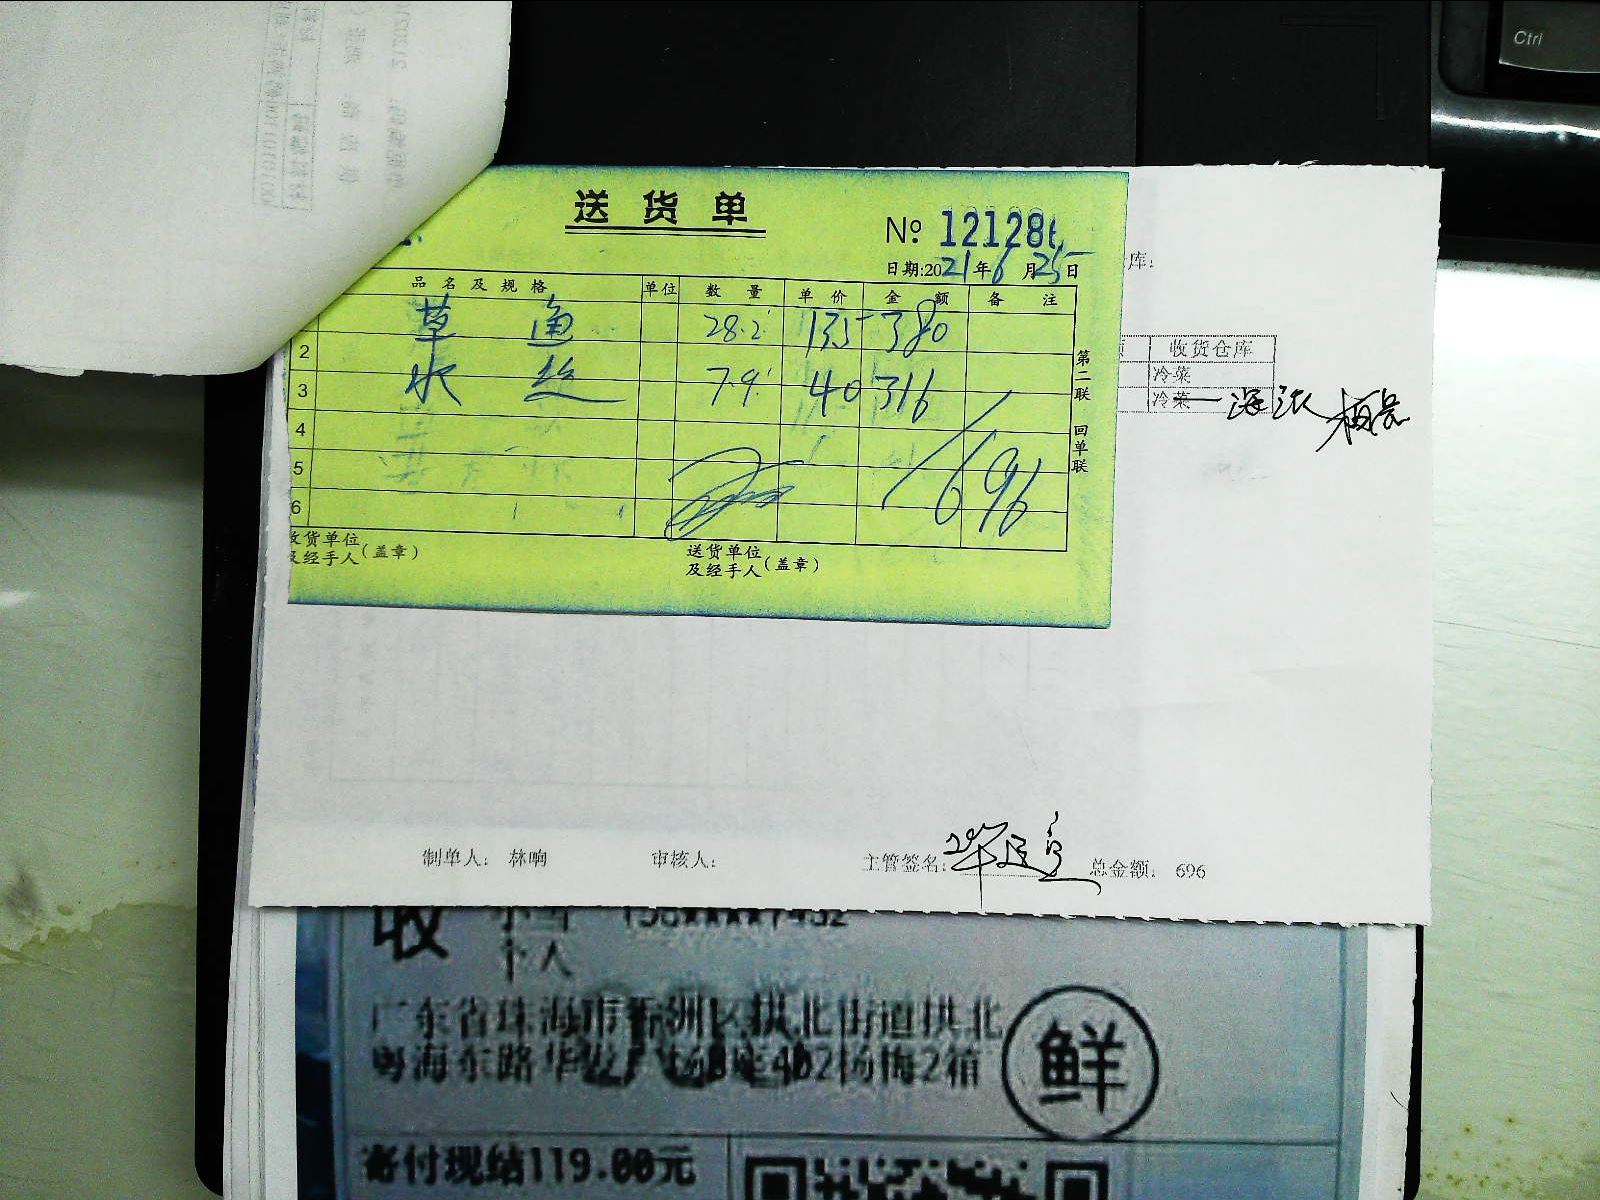 Ctrl
送货单
№ 121286
日期:2021年6月25日
品名及规格 单位 数量 单价 金额 备注
草鱼 28.2 13.5 380
2 水 7.9 40 316
3
4
5
6
696
第二联 回单联
收货单位及经手人(盖章)
送货单位及经手人(盖章)
库:
收货仓库
冷菜
冷菜
制单人: 林响 审核人: 主管签名: 总金额: 696
收
个人
广东省珠海市香洲区拱北街道拱北
粤海东路华发广场B座402杨梅2箱
鲜
寄付现结119.00元